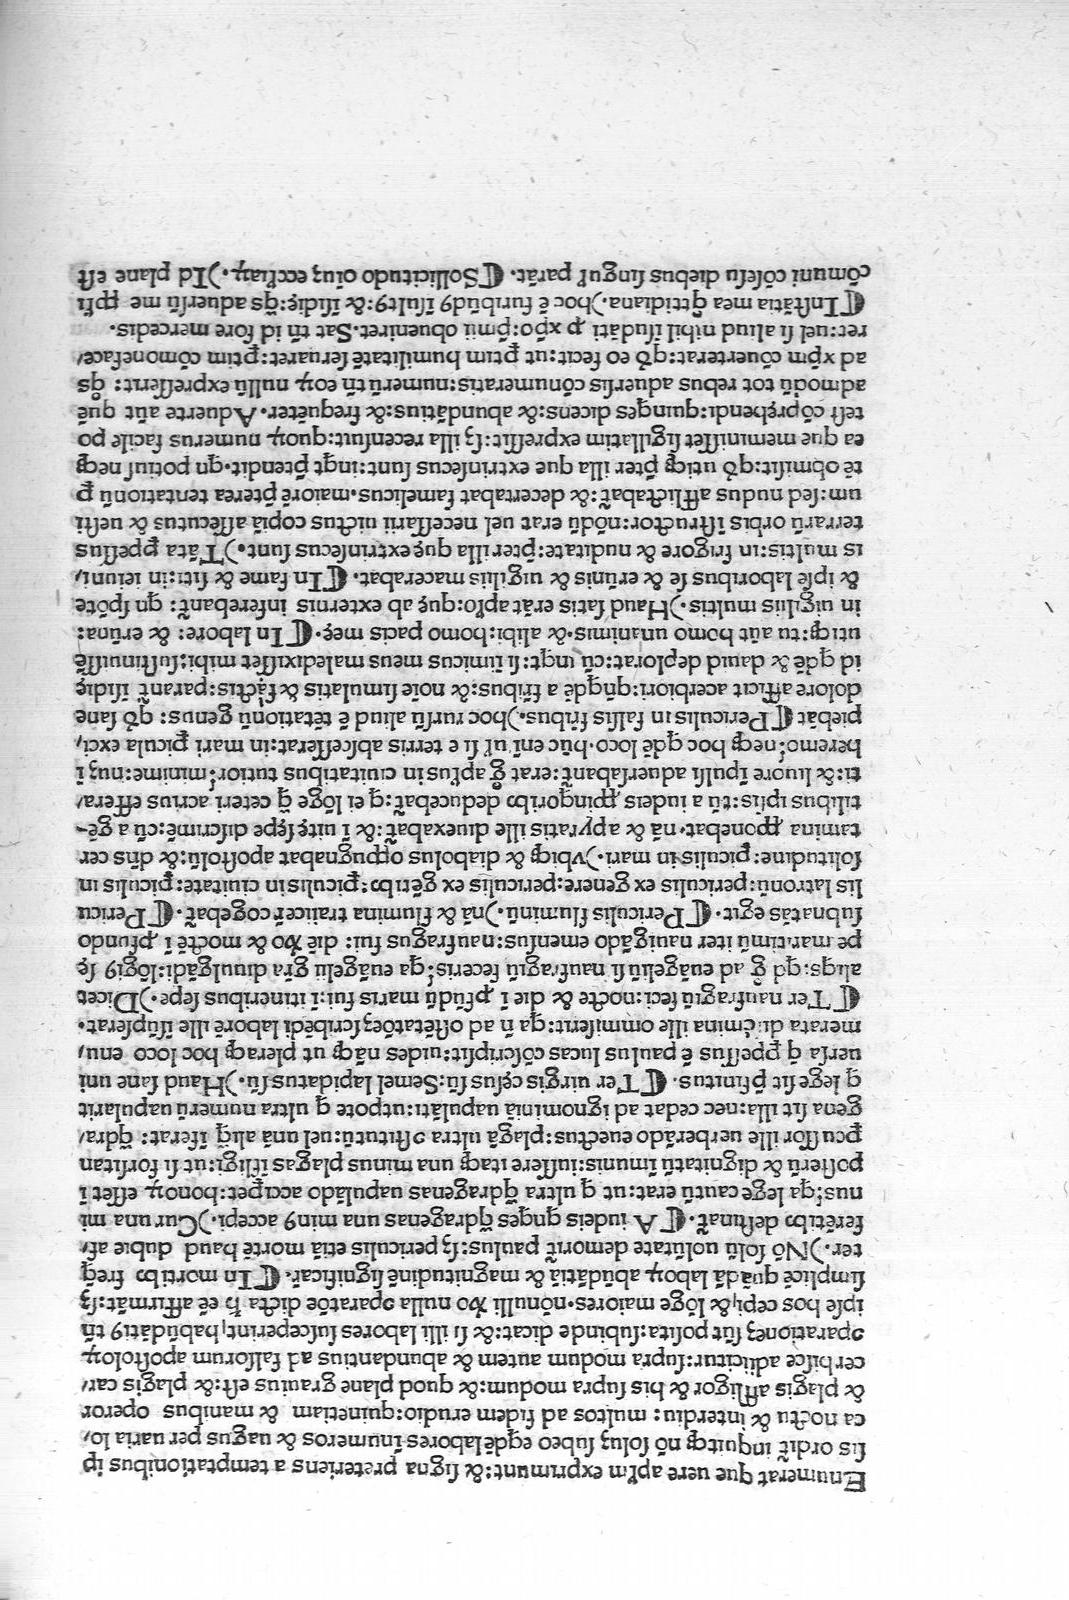 Enumerat que uere apl̃m exprimunt:& signa preteriens a temptationibus ip
sis ordit̃ inquitqꝫ nõ soluꝫ subeo eqdẽ labores ĩnumeros & uagus per uaria lo,
ca noctu & interdiu: multos ad fidem erudio:quinetiam & manibus operor
& plagis affligor & his supra modum:& quod plane grauius est:& plagis car,
cerbisce adiicitur:supra modum autem & abundantius ad falsorum apostoloꝝ
ↄparationeꝫ sũt posita:subinde dicat:& si illi labores susceperint, habũdãti9 tñ
ipse hos cepi,& lõge maiores.nõnulli ꝟo nulla ↄparatõe dicta ħ eẽ affirmãt:sꝫ
simplicẽ quãdã laboꝝ abũdãtiã & magnitudinẽ significar̃. ⸿In mortibꝰ freq̃
ter.)Nõ solũ uolũtate demorit̃ paulus:sꝫ periculis etiã mortẽ haud dubie af,
ferẽtibꝰ destinat̃.⸿A iudeis qnq̃es q̃dragenas una min9 accepi.)Cur una mi
nus:qa lege cautũ erat:ut q ultra q̃dragenas uapulãdo accipet:honoꝝ esset ĩ
posterũ & dignitatũ ĩmunis:iussere itaqꝫ una minus plagas ĩfligi:ut si forsitan
ꝑcussor ille uerberãdo euectus:plagã ultra ↄstitutũ:uel unã aliq̃ ĩferat: q̃dra,
gena sit illa:nec cedat ad ignominiã uapulãti:utpote q̃ ultra numerũ uapularit
q̃ lege sit p̃finitus. ⸿Ter uirgis cęsus sũ:Semel lapidatus sũ.)Haud sane uni
uersa q̃ ꝑpessus ẽ paulus lucas cõscripsit:uides nãqꝫ ut pleraqꝫ hoc loco enu,
merata discrimina ille ommiserit:qa ñ ad ostẽtatõeꝫ scribẽdi laborẽ ille sũpserat.
⸿Ter naufragiũ feci:nocte & die ĩ ꝓfũdũ maris fui:ĩ itineribus sepe.)Dicet
aliqs:qd g̃ ad euãgeliũ si naufragiũ feceris:qa euãgelii gr̃a diuulgãdi:lõgi9 sę
pe maritimũ iter nauigãdo emensus:naufragus fui: diẽ ꝟo & noctẽ ĩ ꝓfundo
subnatãs egit.⸿Periculis fluminũ.)nã & flumina traiicer̃ cogebat̃.⸿Pericu
lis latronũ:periculis ex genere:periculis ex gẽtibꝰ:ꝑiculis in ciuitate:ꝑiculis in
solitudine:ꝑiculis in mari.)vbiqꝫ & diabolus oppugnabat apostolũ:& dñs cer
tamina ꝓponebat.nã & a pyratis ille diuexabat̃:& ĩ uitę sępe discrimẽ:cũ a gẽ-
tilibus ipsis:tũ a iudeis ꝓpinqoribꝰ deducebat̃:q ei lõge q̃ ceteri acrius effera,
ti:& liuore ĩpulsi aduersabant̃:erat g̊ apl̃us in ciuitatibus tutior:minime:nuꝫ ĩ
heremo:neqꝫ hoc qdẽ loco.hũc eñi ul̃ si e terris abscesserat:in mari ꝑicula exci,
piebãt ⸿Periculis in falsis fr̃ibus.)hoc rursũ aliud ẽ tẽtationũ genus: qđ sane
dolore afficit acerbiori:qñqdẽ a fr̃ibus:& noĩe simulatis & fictis:parant̃ ĩsidię
id qdẽ & dauid deplorat:cũ inqt:si iĩmicus meus maledixisset mihi:sustinuissẽ
utiqꝫ:tu aũt homo unanimis.& alibi:homo pacis meę.⸿In labore: & erũna:
in uigiliis multis.)Haud satis erãt apl̃o:quę ab externis inferebant̃: qn spõte
& ipse laboribus se & erũnis & uigiliis macerabat. ⸿In fame & siti:in ieiuni,
is multis:in frigore & nuditate:p̃ter illa quę extrinsecus sunt.)Tãta ꝑpessus
terrarũ orbis ĩstructor:nõdũ erat uel necessarii uictus copiã assecutus & uesti
um:sed nudus afflictabat̃:& decertabat famelicus.maiorẽ p̃terea tentationũ ꝑ
tẽ obmisit:qđ utiqꝫ p̃ter illa que extrinsecus sunt:inqt p̃tendit.qn potiuſ neqꝫ
ea que meminisset sigillatim expressit:sꝫ illa recensuit:quoꝝ numerus facile po
test cõprẹhendi:quinq̃es dicens:& abundãtius:& frequẽter.Aduerte aũt quẽ
admodũ tot rebus aduersis cõnumeratis:numerũ tñ eoꝝ nullũ expresserit: qs
ad xp̃m cõuerterat:qđ eo fecit:ut ꝑtim humilitatẽ seruaret:ꝑtim cõmoneface,
ret:uel si aliud nihil ĩsudãti ꝓ xp̃o:p̃mii obueniret.Sat tñ id fore mercedis.
⸿Instãtia mea qtidiana.)hoc ẽ furibũd9 ĩsult9:& ĩsidię:qs aduersũ me ꝓpsi
cõmuni cõsẽsu diebus singul̃ parãt.⸿Sollicitudo oĩuꝫ eccl̃iaꝝ.)Id plane est